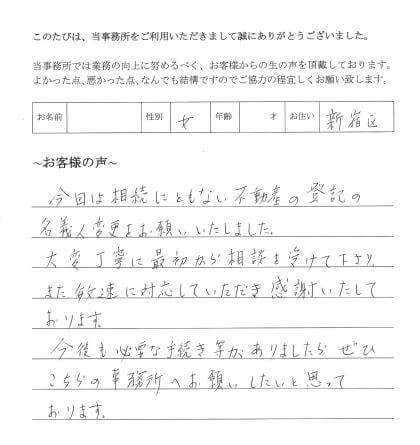 このたびは、当事務所をご利用いただきまして誠にありがとうございました。
当事務所では業務の向上に努めるべく、お客様からの生の声を頂戴しております。
よかった点、悪かった点、なんでも結構ですのでご協力の程宜しくお願い致します。
お名前 性別 女 年齢 才 お住い 新宿区
~お客様の声~
今回は相続にともない不動産の登記の
名義人変更をお願いいたしました。
大変丁寧に最初から相談を受けて下さり、
また敏速に対応していただき感謝いたして
おります。
今後も必要な手続き等がありましたら ぜひ
こちらの事務所へお願いしたいと思って
おります。